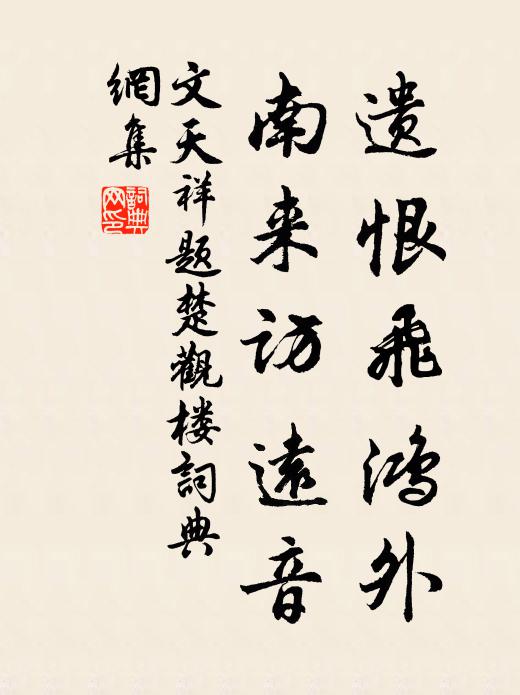 遗恨飛鴻外
南来访遠音
文天祥题楚觀楼詞典
網集
詞典
网印